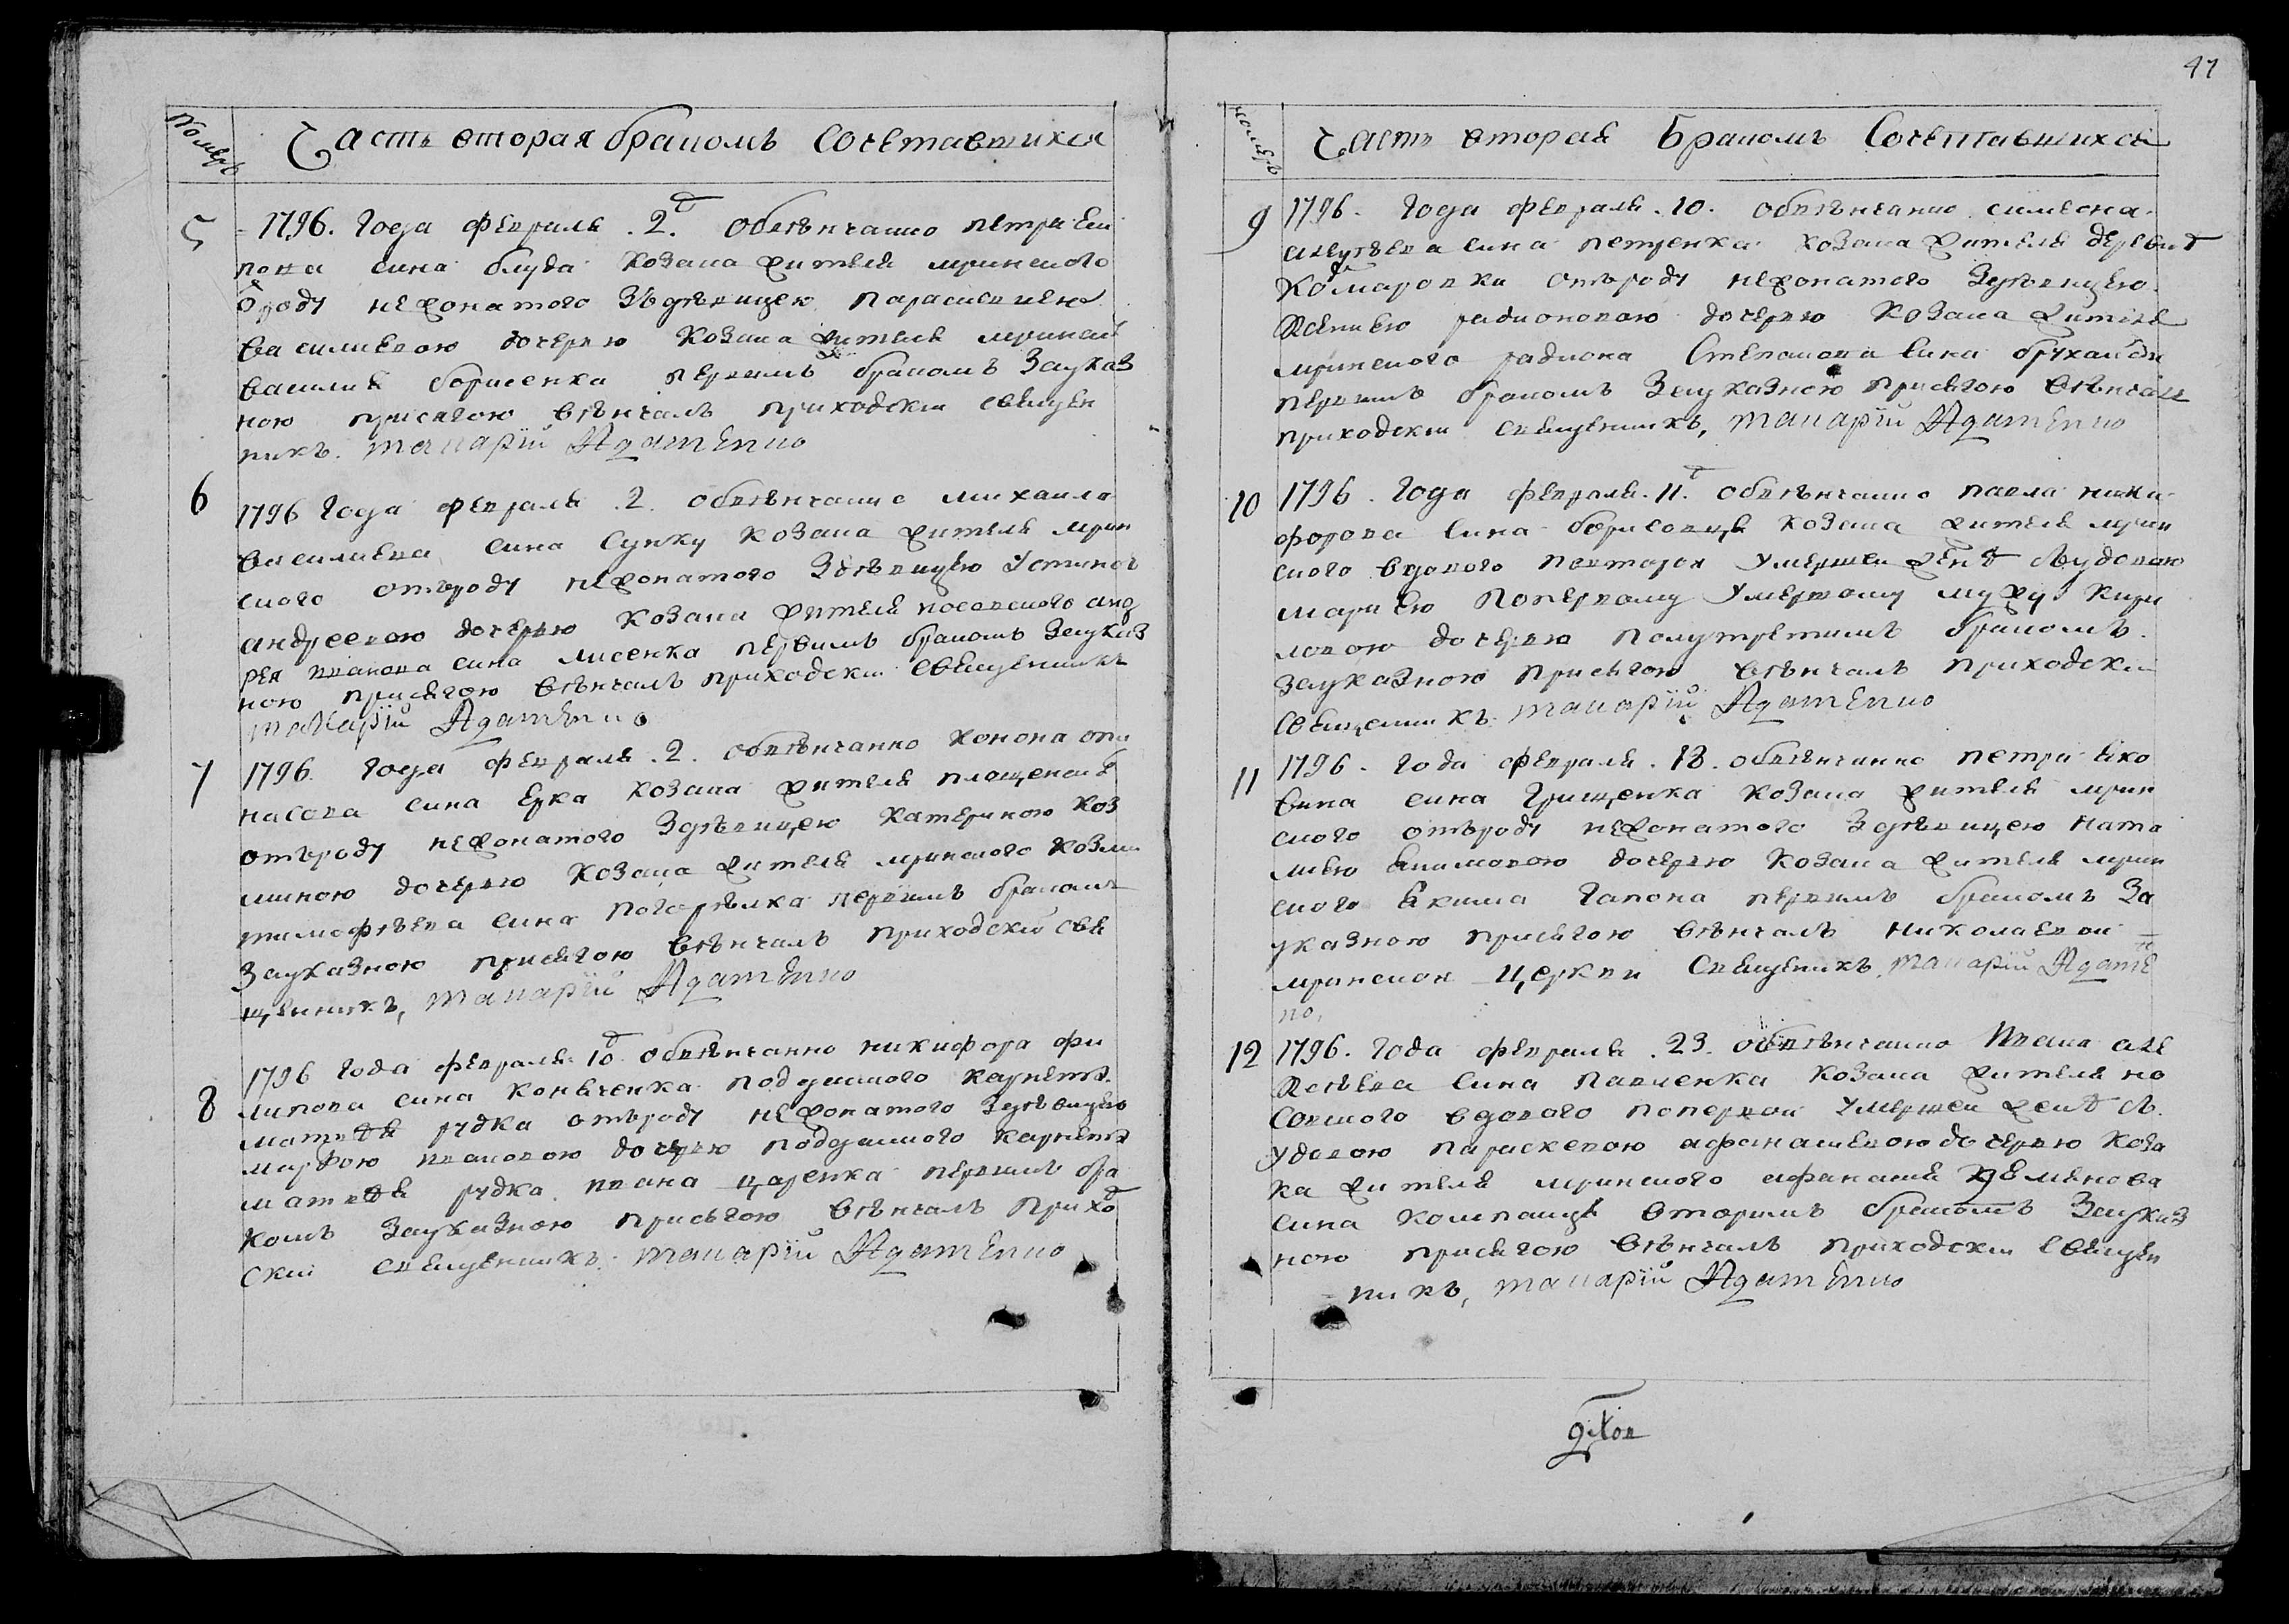 Номеръ
Часть вторая бракомъ Сочетавшихся
5
1796. Года февраля .2. Обвѣнчанно петра
сина блуда козака жителя мринского
роду нежонатого Здѣвицею параскевиею
василиевою дочерю Козака жителя мринск
василия борисенка первимъ бракомъ Зауказ
ною присягою вѣнчалъ приходски священ
никъ. Макарїй Адаменко
6
1796 Года февраля .2. обвѣнчанно михаила
василиева сина Сушку козака жителя мрин
ского отъроду нежонатого Здѣвицею Устиною
андреевою дочерю козака жителя носовского анд
рея иванова сина лисенка первимъ бракомъ Зауказ
ною присягою вѣнчалъ приходски священникъ
Макарїй Адаменко
7
1796. Года февраля .2. обвѣнчанно конона опа
насова сина Ерка козака жителя
отъроду нежонатого Здѣвицею катериною коз
миною дочерю козака жителя мринского козми
тимофѣева сина погорѣлка первимъ бракомъ
Зауказною присягою вѣнчалъ приходскїй свя
щенникъ, Макарїй Адаменко
8
1796 Года февраля. 10. обвѣнчанно никифора фи
липова сина подданного
рудка отъроду нежонатого Здѣвицею
марфою ивановою дочерю подданного
рудка ивана царенка первимъ бра
комъ Зауказною присягою вѣнчалъ Приход
ский священникъ. Макарїй Адаменко
47
номеръ
Часть вторая Бракомъ Сочетавшихся
9
1796. Года февраля .10. обвѣнчанно симеона
сина петренка козака жителя деревнѣ
Комаровки отъроду нежонатого Здѣвицею
Ксениею радионовою дочерю козака жителя
мринского радиона Степанова сина
первимъ бракомъ Зауказною присягою вѣнчалъ
приходски священникъ, Макарїй Адаменко
10
1796. Года февраля. 11. обвѣнчанно павла ники
форова сина борисовца козака жителя мрин
ского вдового умершей женѣ
мариею Поперхому умершому мужу кири
ловою дочерю полутретимъ бракомъ
зауказною присягою вѣнчалъ приходски
священникъ. Макарїй Адаменко
11
1796. года февраля. 18. обвѣнчанно петра яко
вина сина Грищенка козака жителя мрин
ского отъроду нежонатого Здѣвицею ната
лиею якимовою дочерю козака жителя мрин
ского якима гапона первимъ бракомъ За
указною присягою вѣнчалъ николаевой
мринской церкви Священикъ, Макарїй Адаме
нко,
12
1796. Года февраля .23. обвѣнчанно ивана але
ксѣева сина павленка козака жителя но
совского вдового поперхой умершей женѣ съ
удовою параскевою афанасиевою дочерю коза
ка жителя мринского афанасия демянова
сина компанца вторимъ бракомъ Зауказ
ною присягою вѣнчалъ приходски священ
никъ, Макарїй Адаменко